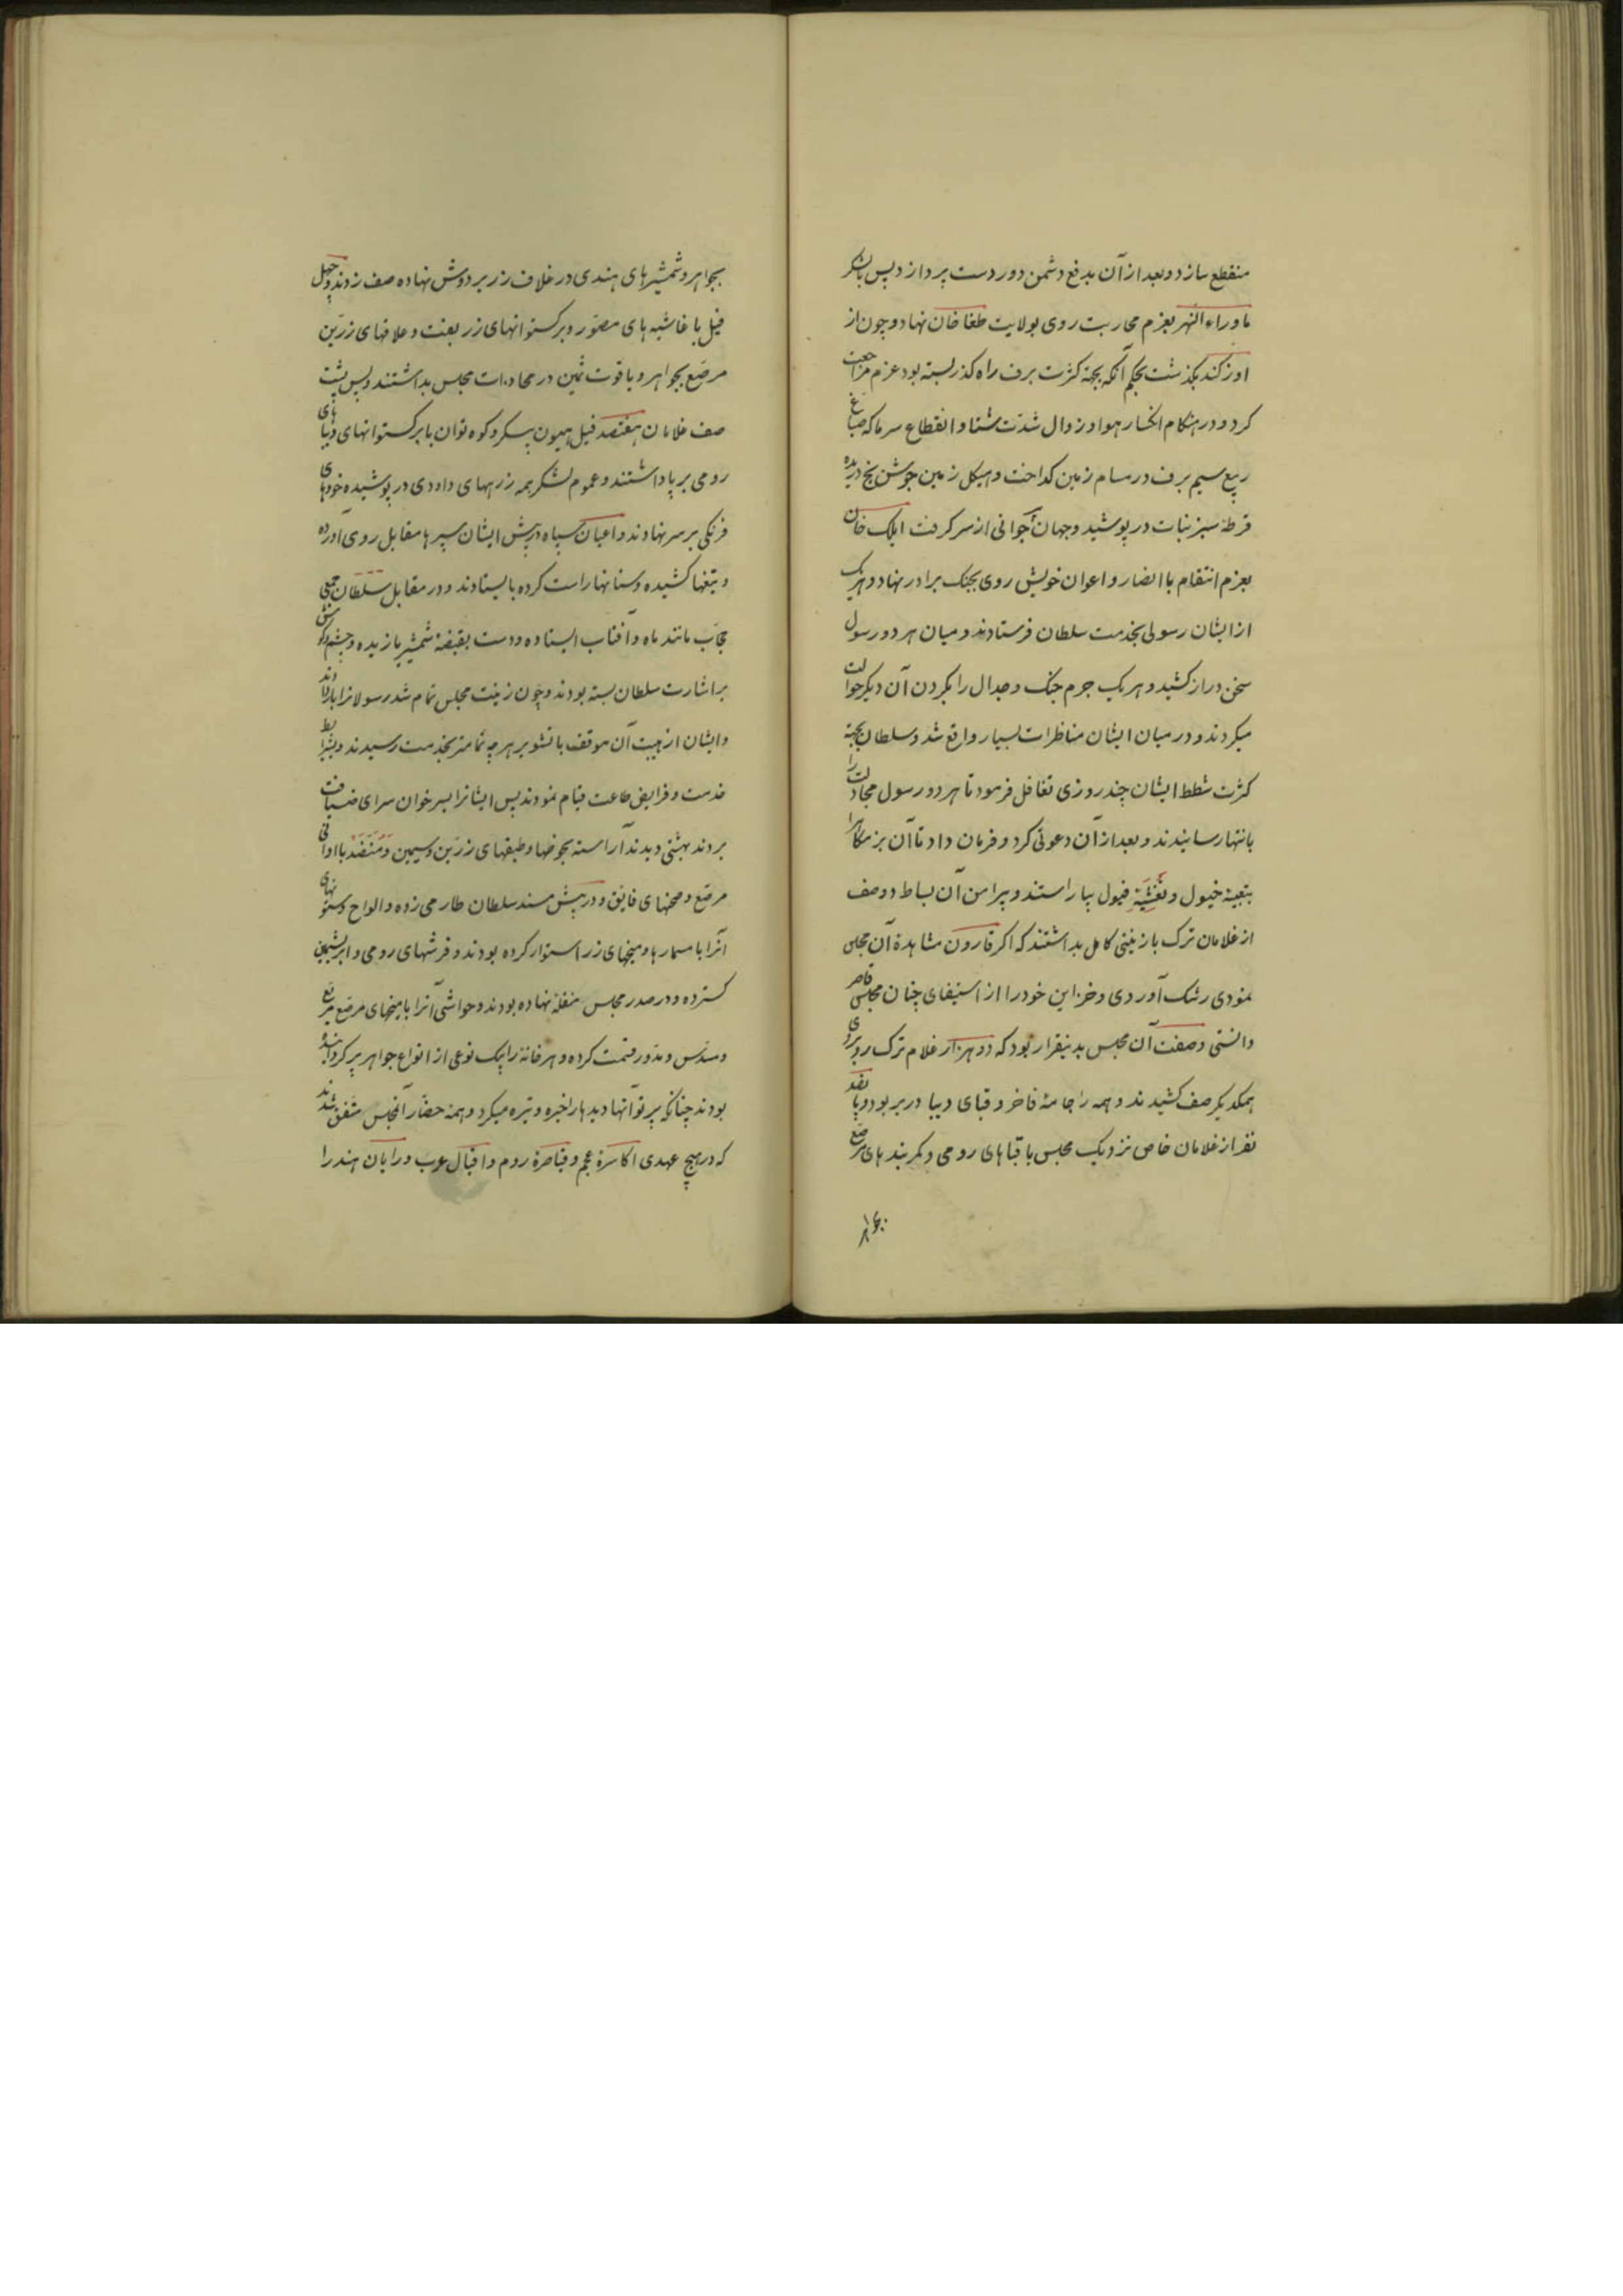 منقطع سازد و بعد از آن بدفع دشمن دور دست پردازد پس با لشکر
ماوراء النهر بعزم محاربت روی بولایت طغا خان نهاد و چون از
اوزکند بگذشت بحکم آنکه بجهة کثرت برف راه گذر بسته بود عزم مراجعت
کرد و در هنگام انکسار هوا و زوال شدّت شتا و انقطاع سرما که صباغ
ربیع سیم برف در مسام زمین گداخت و هیکل زمین جوشن یخ دریده
قرطهٔ سبز نبات در پوشید و جهان جوانی از سر گرفت ایلک خان
بعزم انتقام با انصار و اعوان خویش روی بجنک برادر نهاد و هر یک
از ایشان رسولی بخدمت سلطان فرستادند و میان هر دو رسول
سخن دراز کشید و هر یک جرم جنک و جدال را بگردن آن دیگر حوالت
میکردند و در میان ایشان مناظرات بسیار واقع شد و سلطان بجهة
کثرت شطط ایشان چند روزی تغافل فرمود تا هر دو رسول مجادلت را
بانتها رسانیدند و بعد از آن دعوتی کرد و فرمان داد تا آن بزمگاه را
بتعبیهٔ خیول و تغشیهٔ فیول بیاراستند و پیرامن آن بساط دو صف
از غلامان ترک با زینتی کامل بداشتند که اگر قارون مشاهدهٔ آن مجلس
نمودی رشک آوردی و خزاین خود را از استیفای چنان مجلس قاصر
دانستی و صفت آن مجلس بدینقرار بود که دو هزار غلام ترک رو بروی
همدیگر صف کشیدند و همه را جامهٔ فاخر و قبای دیبا در بر بود و پانصد
نفر از غلامان خاص نزدیک مجلس با قباهای رومی و کمربندهای مرصع
بجواهر و شمشیرهای هندی در غلاف زر بر دوش نهاده صف زدند و چهل
فیل با غاشیه های مصوّر و برکستوانهای زر بفت و علاقهای زرّین
مرصّع بجواهر و یاقوت ثمین در محاذات مجلس بداشتند و پس پشت
صف غلامان هفتصد فیل هیون پیکر و کوه توان با برکستوانهای دیبای
رومی بر پا داشتند و عموم لشکر همه زرههای داودی در پوشیده خودهای
فرنگی بر سر نهادند و اعیان سپاه در پیش ایشان سپرها مقابل روی آورده
و تیغها کشیده و سنانها راست کرده بایستادند و در مقابل سلطان جمعی
حجّاب مانند ماه و آفتاب ایستاده و دست بقبضهٔ شمشیر یازیده و چشم و گوش
بر اشارت سلطان بسته بودند و چون زینت مجلس تمام شد رسولانرا بار دادند
و ایشان از هیبت آن موقف با تشویر هر چه تمامتر بخدمت رسیدند و بشرایط
خدمت و فرایض طاعت قیام نمودند پس ایشانرا بسر خوان سرای ضیافت
بردند بهشتی دیدند آراسته بحوضها و طبقهای زرّین و سیمین و منضّد با اوانی
مرصّع و صحنهای فایق و در پیش مسند سلطان طارمی زده و الواح و ستونهای
آنرا با مسمارها و میخهای زر استوار کرده بودند و فرشهای رومی و ابریشمین
گسترده و در صدر مجلس منقلهٔ نهاده بودند و حواشی آنرا با میخهای مرصّع مربع
و مسدّس و مدّور قسمت کرده و هر خانهٔ را بیک نوعی از انواع جواهر پر گردانیده
بودند چنانکه پرتو آنها دیدها را خیره و تیره میکرد و همه حضّار آنمجلس متفق شدند
که در هیچ عهدی اکاسرهٔ عجم و قیاصرهٔ روم و اقیال عرب و رایان هند را